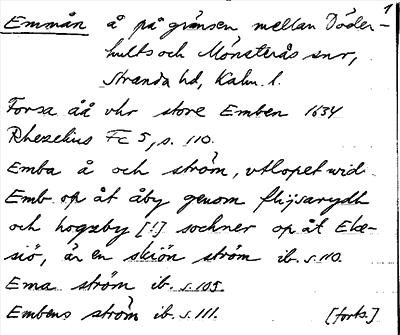 1
Emmån å på gränsen mellan Döder-
hults och Mönsterås snr,
Stranda hd, Kalm. l.
Forsa åå vhr store Emben 1634
Rhezelius Fc 5, s. 110.
Emba å och ström, vtlopet wid
Emb op åt åby genom flijsarydh
och hogzby [!] sochner op åt Eke-
siö, är en skiön ström ib. s. 110.
Ema ström ib. s. 105.
Embens ström ib. s. 111. [forts.]